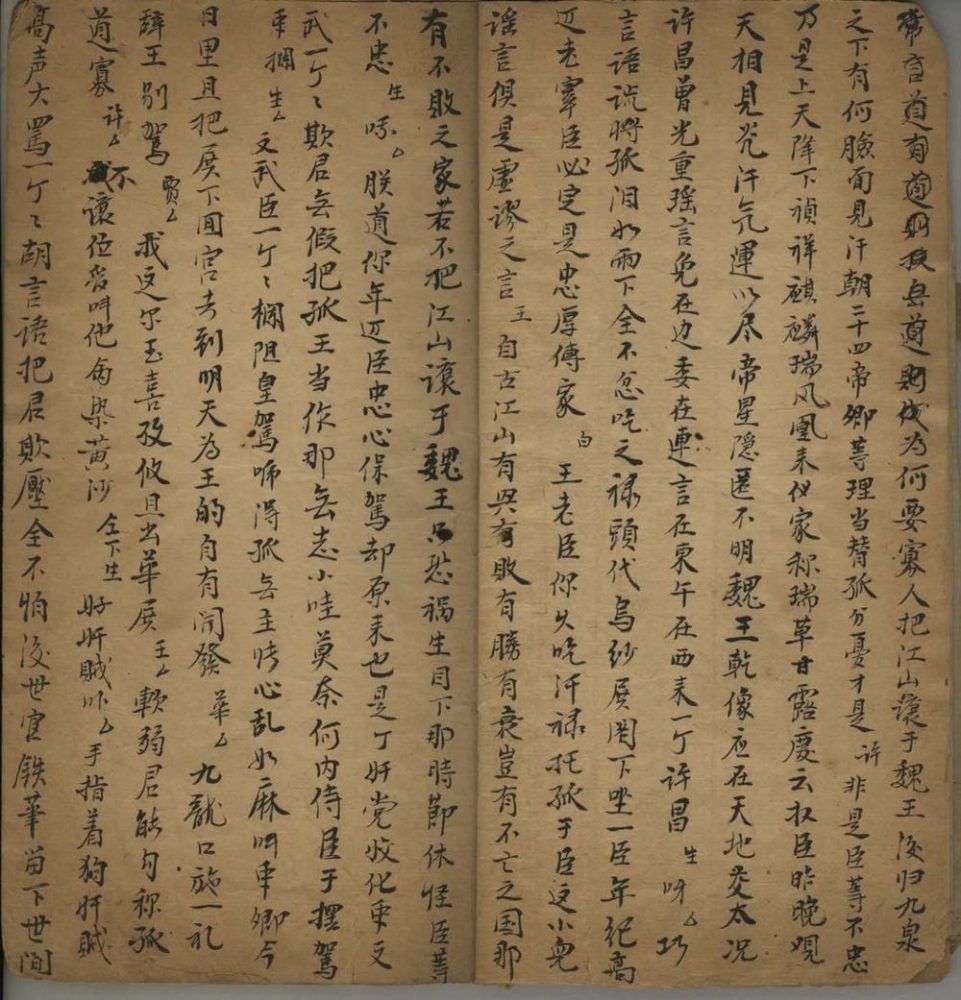 常言道有道則投無道則伐為何要寡人把江山讓于魏王後归九泉
之下有何臉面見汗朝二十四帝卿等理当替孤分憂才是許非是臣等不忠
乃是上天降下禎祥麒麟瑞凤凰来仪家称瑞草甘露慶云叔臣昨晚观
天相見炎汗气運以尽帝星隐匿不明魏王乾像应在天地交太况
许昌曽光重瑶言兔在边委在連言在東午在西来一个许昌生呀厶巧
言語説將孤泪如雨下全不忿吃之禄頭代烏紗展阁下坐一臣年纪高
迈老宰臣必定是忠厚傳家白王老臣你久吃汗禄托孤于臣这小兒
謡言俱是虚謬之言王自古江山有兴有敗有勝有衰豈有不亡之国那
有不敗之家若不把江山讓于魏王只恐禍生目下那時節休怪臣等
不忠生唗厶朕道你年迈臣忠心保駕却原来也是个奸党收化来文
武一个〻欺君無假把孤王当作那無志小哇莫奈何内侍臣于擺駕
来摑生厶文武臣一个〻欄阻皇駕啼得孤無主恃心乱如麻叫来卿今
日里且把展下回宫去到明天為王的自有開發華厶九龍口施一礼
辞王别驾賈厶我这尔玉喜孜攸且出華展王厶軟弱君能句称孤
道寡许厶不讓位管叫他命染黄沙仝下生好奸賊吓厶手指着狗奸賊
高声大罵一个〻胡言語把君欺壓全不怕後世官铁筆笛下世間